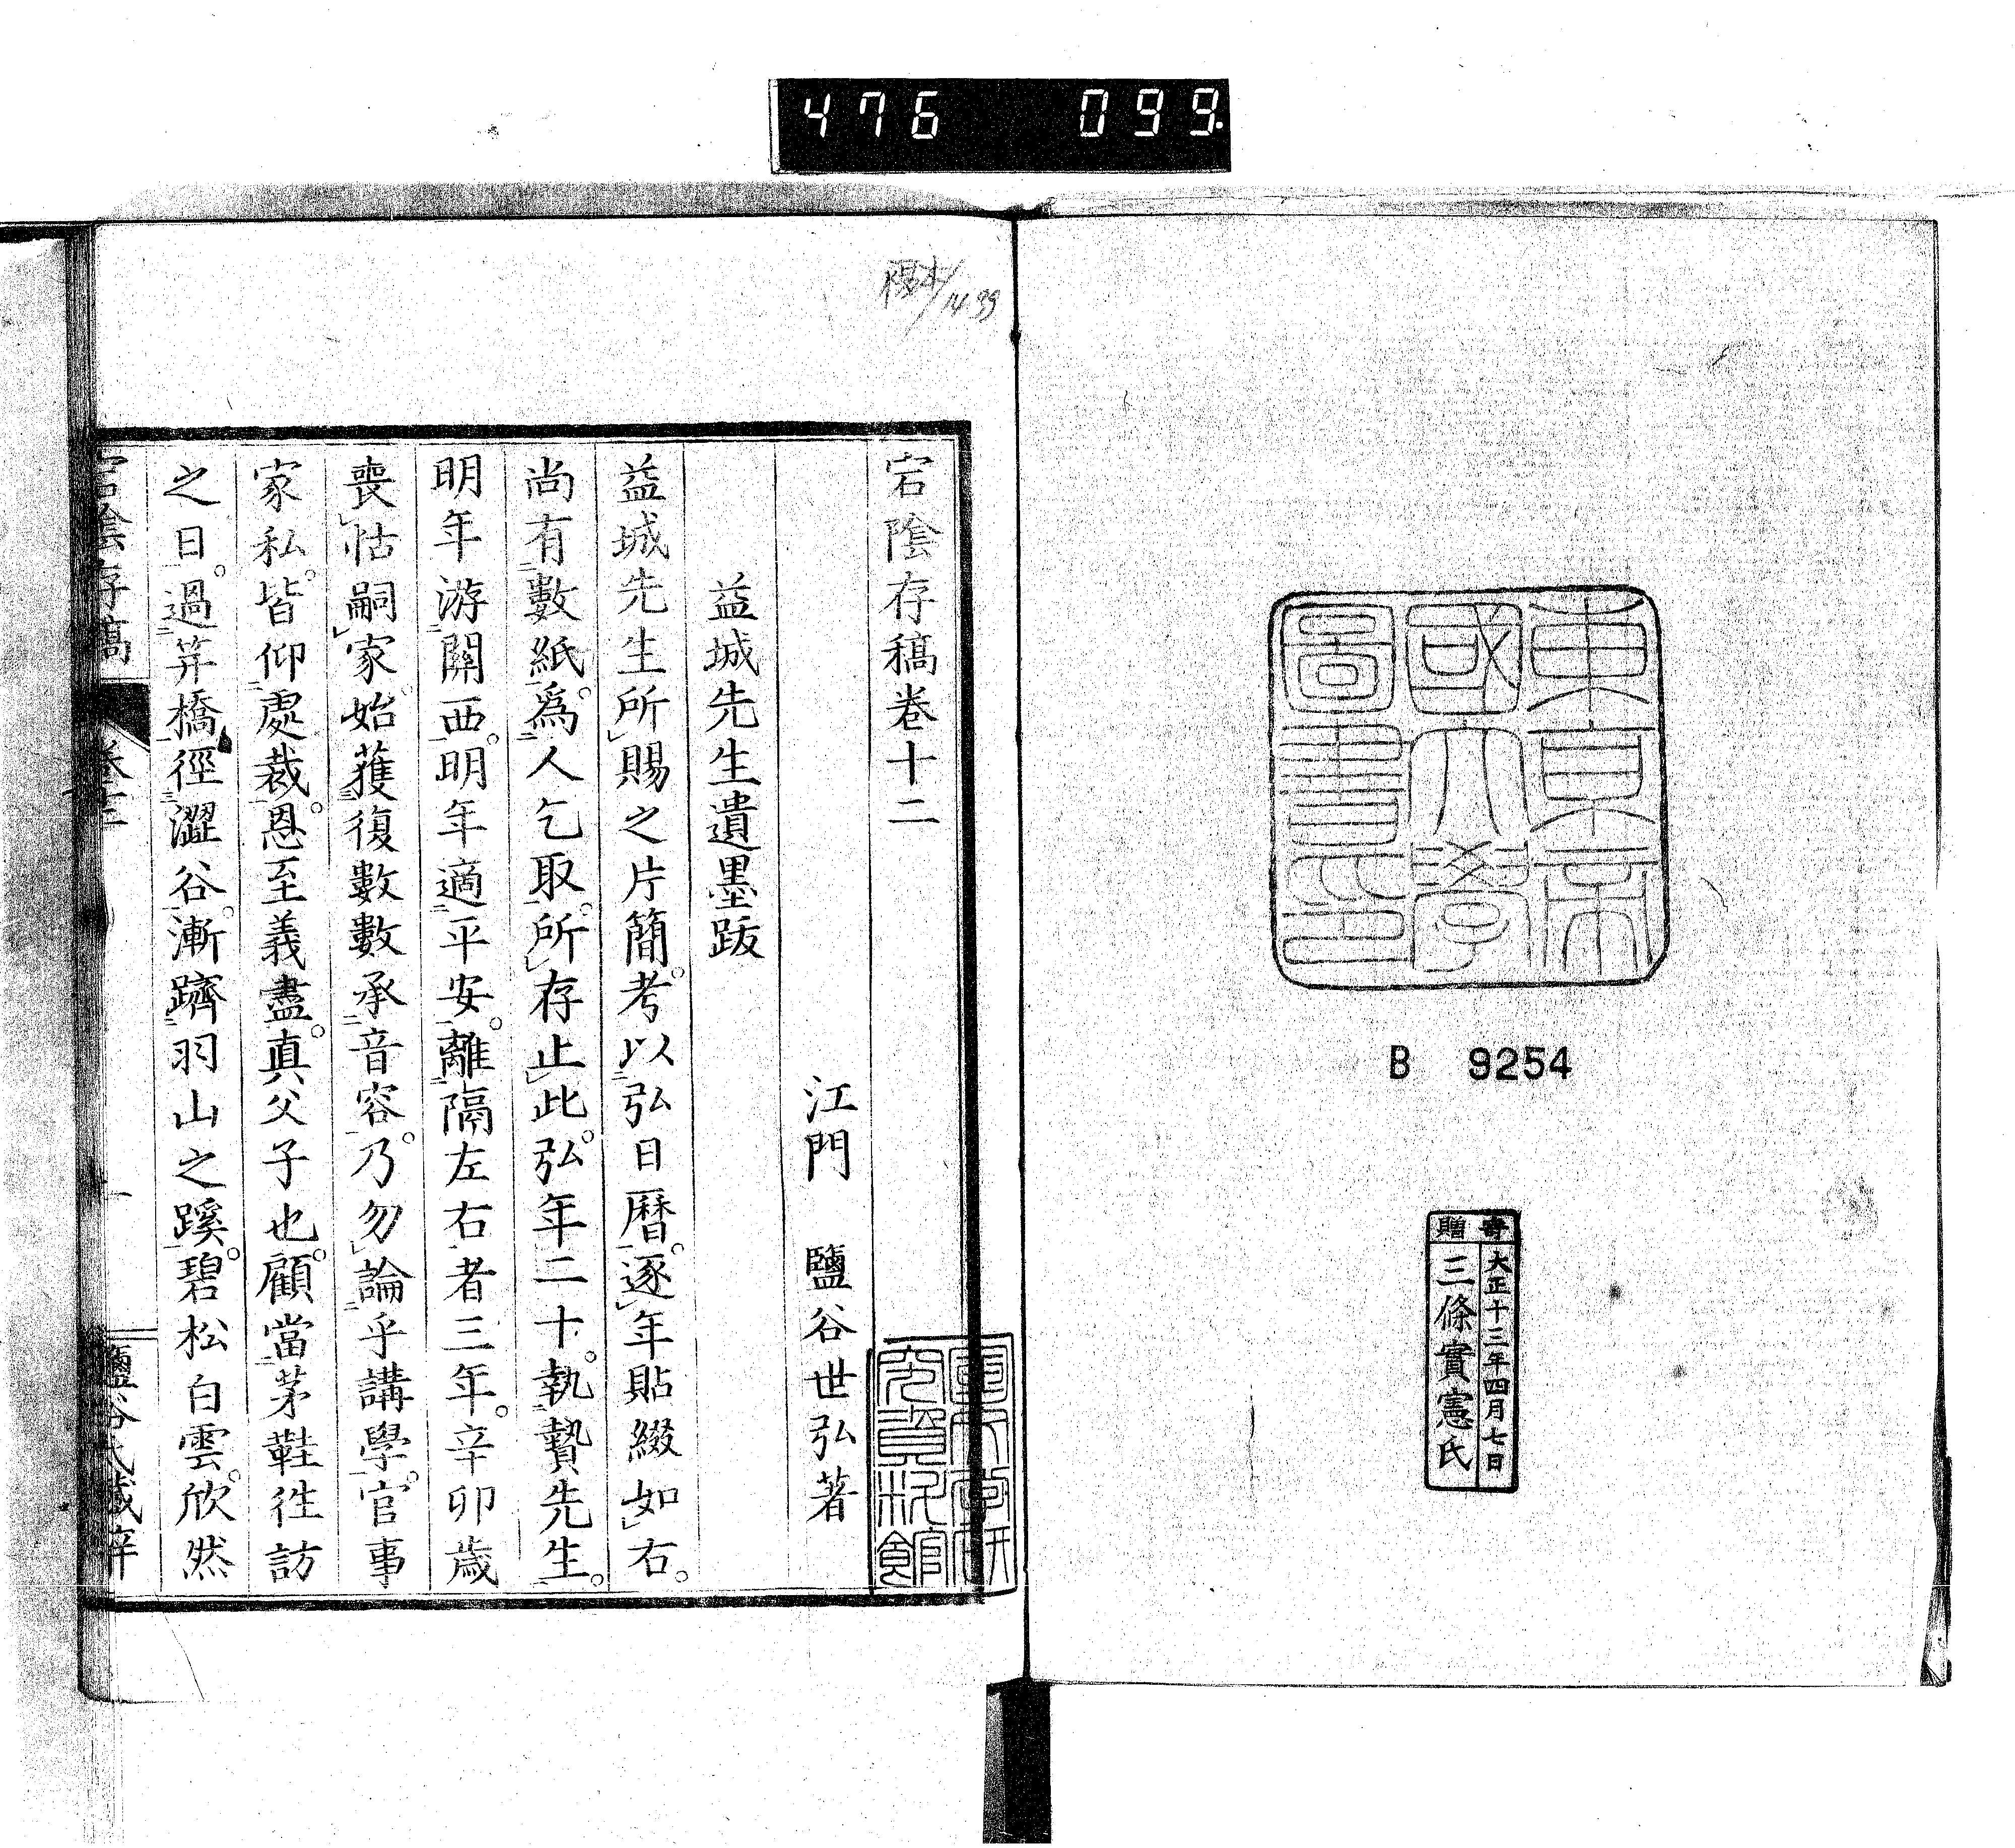 476 099
東京帝
國大學
圖書印
B 9254
寄贈
大正十三年四月七日
三條實憲氏
宕陰存稿卷十二
江門 鹽谷世弘著
益城先生遺墨跋
益城先生所賜之片簡。考以弘日曆。逐年貼綴如右。
尚有數紙。爲人乞取。所存止此。弘年二十。執贄先生。
明年游關西。明年適平安。離隔左右者三年。辛卯歳
喪怙嗣家。始獲復數數承音容。乃勿論乎講學。官事
家私。皆仰處裁。恩至義盡。真父子也。顧當茅鞋徃訪
之日。過笄橋徑澀谷。漸躋羽山之蹊。碧松白雲。欣然
宕陰存稿
卷十二
一
鹽谷氏藏梓